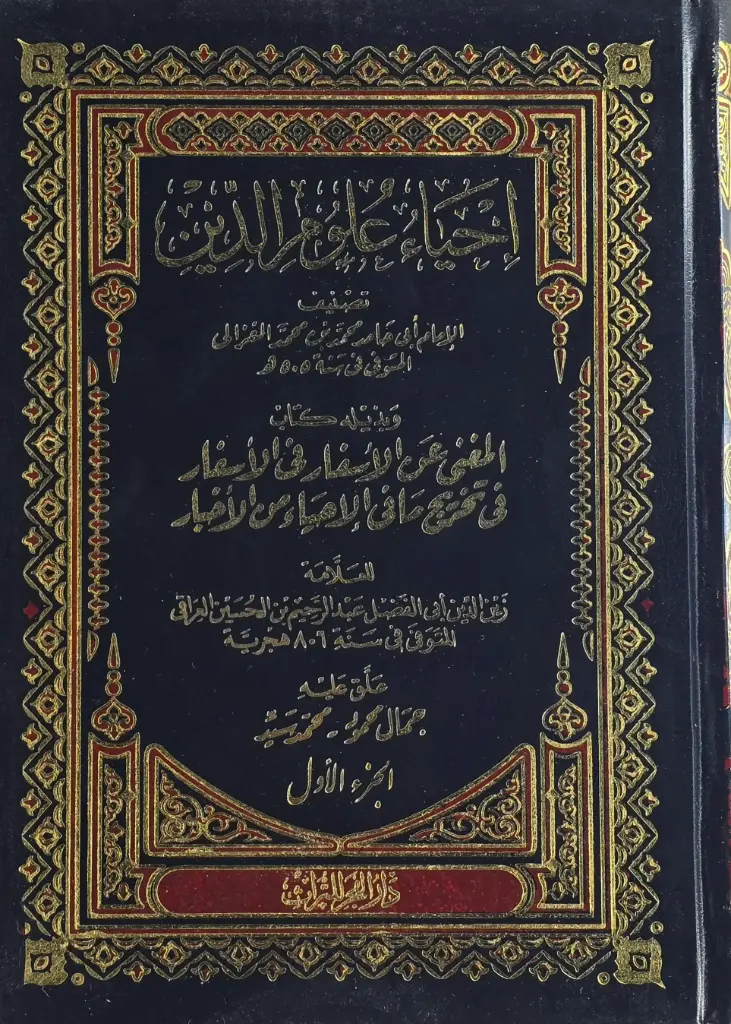 إحْيَاءُ عُلُومِ الدِّيْنِ
تصنيف
الإمام أبى حامد محمد بن محمد الغزالى
المتوفى فى سنة ٥٠٥ هـ
وبذيله كتاب
المغنى عن الأسفار فى الأسفار
فى تخريج ما فى الإحياء من الأخبار
للعلَّامة
زين الدين أبى الفضل عبد الرحيم بن الحسين العراقى
المتوفى فى سنة ٨٠٦ هجرية
علق عليه
جمال محمود - محمد سيد
الجزء الأول
دار الفجر للتراث